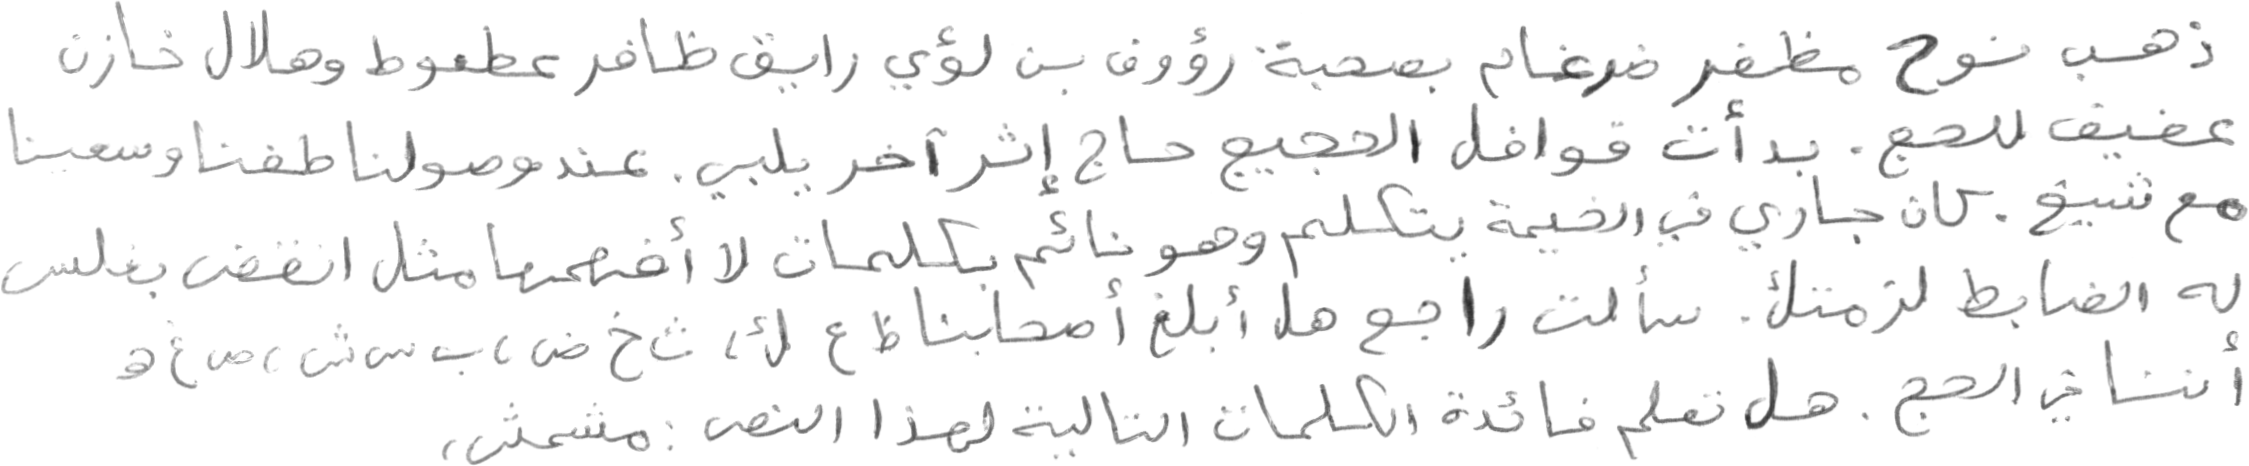 ذهب نوح مظفر ضرغام بصحبة رؤوف بن لؤي رايق ظافر عطعوط وهلال خازن
عفيف للحج. بدأت قوافل الحجيج حاج إثر آخر يلبي. عند وصولنا طفنا وسعينا
مع شيخ. كان جاري في الخيمة يتكلم وهو نائم بكلمات لا أفهمها مثل انقض بغلس
له الضابط لزمتك. سألت راجح هل أبلغ أصحابنا ظ ع ك، ث خ ض، ب س ش، ص غ ه
أننا في الحج. هل تعلم فائدة الكلمات التالية لهذا النص: مشمش،